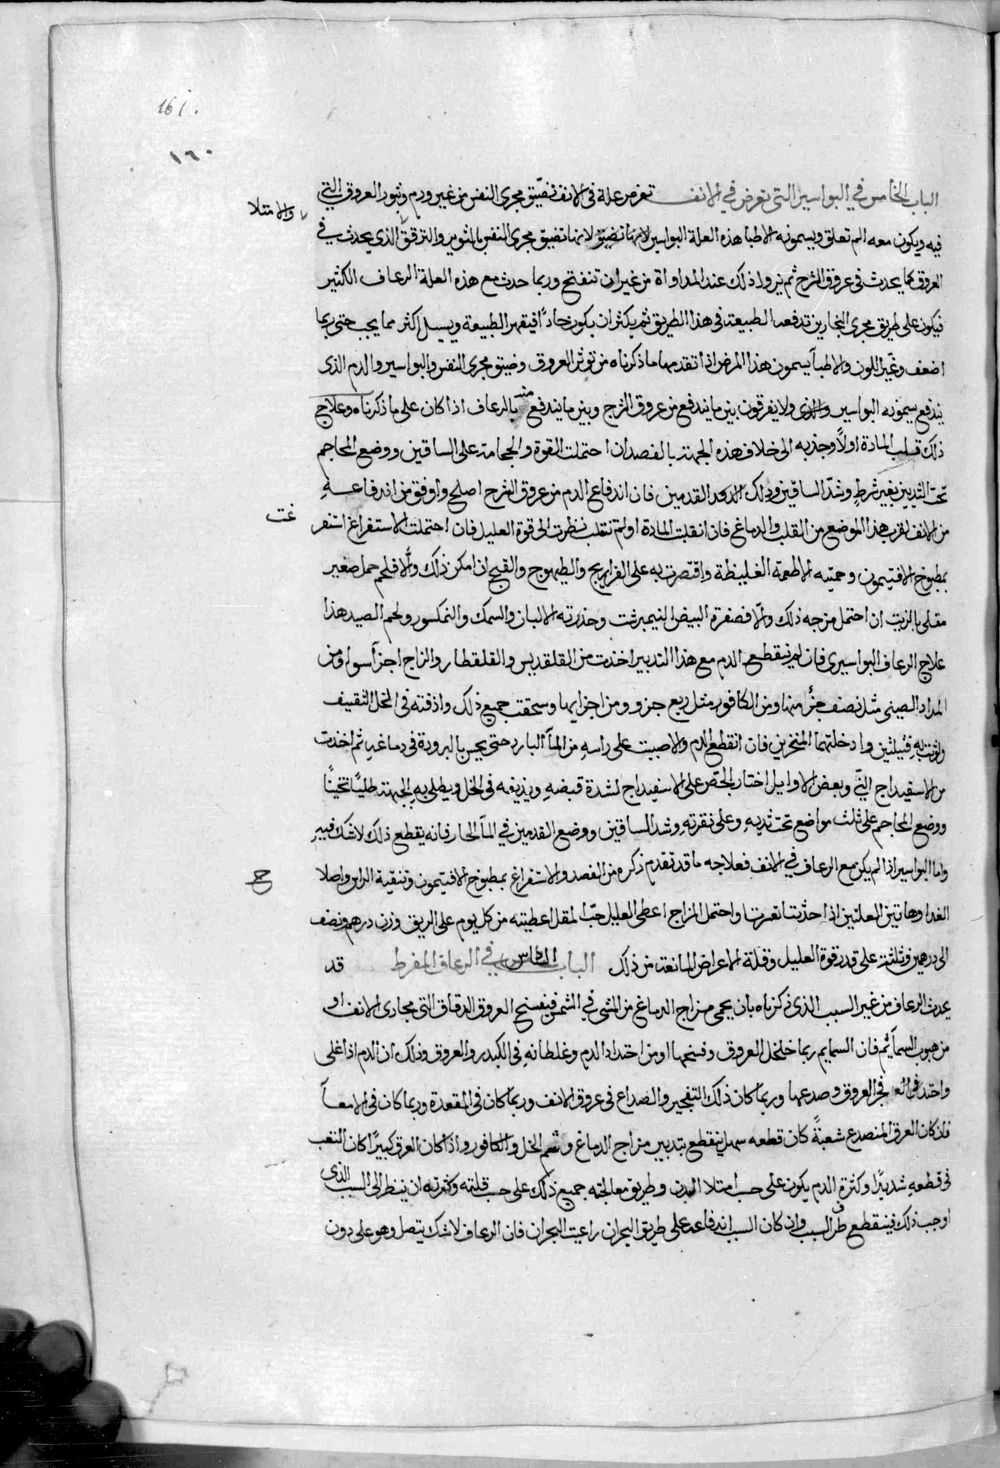 161.
١٦٠
الباب الخامس في البواسير التي تعرض في الانف تعرض علة في الانف فتضيق مجرى النفس من غير ورم وتثور العروق التي
والامتلا
فيه ويكون معه الم تعلق ويسمونه الاطبا هذه العلة البواسير لانها تضيق لانها تضيق مجرى النفس بالتوتير والترقق الذي يحدث في
العروق كما يحدث في عروق الشرج ثم يزول ذلك عند المداواة من غير ان تنفتح وربما حدث مع هذه العلة الرعاف الكثير
فيكون على طريق مجرى البخارين تدفعه الطبيعة في هذا الطريق ثم يكثر ان يكون حاداً فيقهر الطبيعة ويسيل اكثر مما يجب حتى ربما
اضعف وغير اللون والاطبآ يسمون هذا المرض اذا تقدمها ما ذكرناه من توتر العروق وضيق مجرى النفس والبواسير والدم الذي
يندفع يسمونه البواسير والذي ولا يفرقون بين ما يندفع من عروق الشرج وبين ما يندفع منه بالرعاف اذا كان على ما ذكرناه وعلاج
ذلك قلب المادة اولاً وجذبه الى خلاف هذه الجهة بالفصد ان احتملت القوة والحجامة على الساقين ووضع المحاجم
تحت الثديين بغير شرط وشد الساقين ودلك القدمين فان اندفاع الدم من عروق الشرج اصلح واوفق من اندفاعه
من الانف لقرب هذا الموضع من القلب والدماغ فان انقلبت المادة او لم تنقلب نظرت الى قوة العليل فان احتملت الاستفراغ استفر
غت
بمطبوخ الافتيمون وحميته الاطعمة الغليظة واقتصرت به على الفراريج والطيهوج والقبج ان امكن ذلك والا فلحم حمل صغير
مقلى بالزيت ان احتمل مزجه ذلك والا فصفرة البيض النيمبرشت وحذرته الالبان والسمك والنمكسور ولحم الصيد هذا
علاج الرعاف البواسيري فان لم ينقطع الدم مع هذا التدبير اخذت من القلقديس والقلقطار والزاج اجزآ سوا ومن
المداد الصيني مثل نصف جزء منها ومن الكافور مثل ربع جزو من اجزايها وسحقت جميع ذلك واذفته في الخل الثقيف
ولوثت به فتيلتين وادخلتهما المنخرين فان انقطع الدم والا صببت على راسه من المآ البارد حتى يحس بالبرودة في دماغه ثم اخذت
من الاسفيداج الني وبعض الاوايل اختار الجص على الاسفيداج لشدة قبضه ويذيفه في الخل ويطلى به الجبهة طليًا ثخينًا
ووضع المحاجم على ثلث مواضع تحت ثديه وعلى نقرته وشد الساقين ووضع القدمين في المآ الحار فانه يقطع ذلك لا شك فيه
واما البواسير اذا لم يكن مع الرعاف في الانف فعلاجه ما قد تقدم ذكره من الفصد والاستفراغ بمطبوخ الافتيمون وتنقية الراس واصلا
ح
الغدا وهاتين العلتين اذا حدثتا تغيرتا واحتمل المزاج اعطى العليل حب المقل اعطيته من كل يوم على الريق وزن درهم ونصف
الى درهمين وثلثة على قدر قوة العليل وقلة الاعراض المانعة من ذلك الباب السادس في الرعاف المفرط قد
يحدث الرعاف من غير السبب الذي ذكرناه بان يحمى مزاج الدماغ من المشي في الشمس فيفسح العروق الدقاق التي مجاري الانف او
من هبوب السمآئم فان السمايم ربما خلخل العروق وفسخها او من احتداد الدم وغليانه في الكبد والعروق وذلك ان الدم اذا غلى
واحتد فجر العروق وصدعها وربما كان ذلك التفجير والصداع في عروق الانف وربما كان في المقعدة وربما كان في الامعآ
فان كان العرق المنصدع شعبةً كان قطعه سهل ينقطع بتدبير مزاج الدماغ وشم الخل والكافور واذا كان العرق كبيرًا كان التعب
في قطعه شديدًا وكثرة الدم يكون على حسب امتلا البدن وطريق معالجته جميع ذلك على حسب قلته وكثرته ان ينظر الى السبب الذي
اوجب ذلك فينقطع طرق السبب وان كان السبب اندفاعه على طريق البحران راعيت البحران فان الرعاف لا شك يتصل وهو على دون